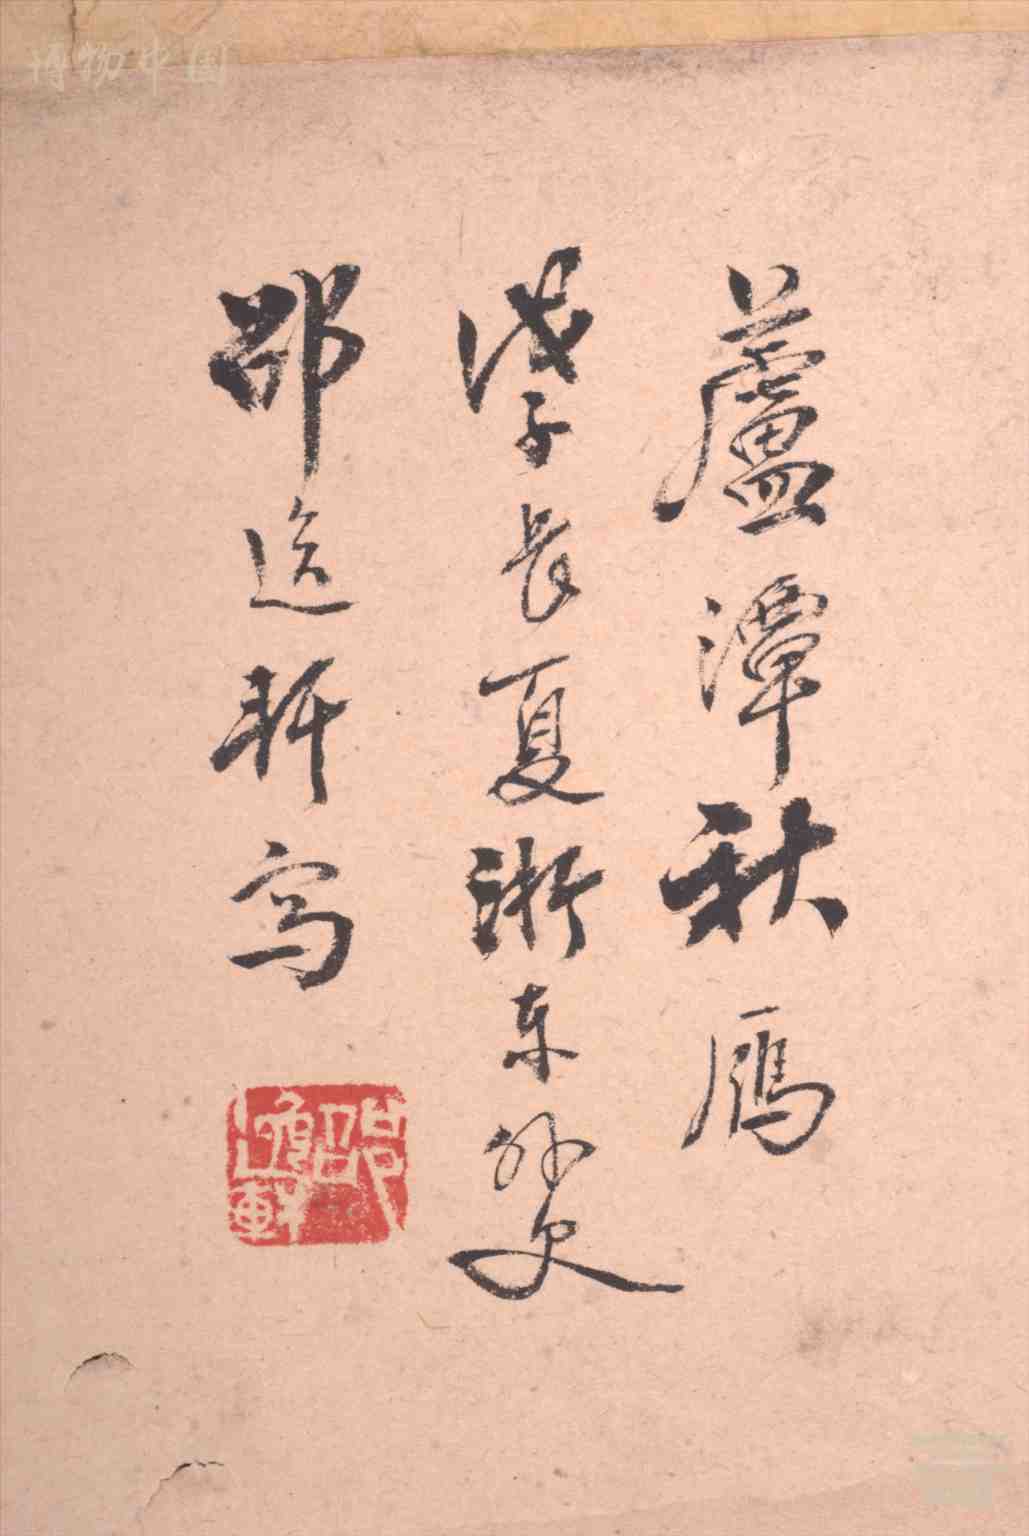 蘆潭秋雁
戊子長夏浙东外史
邵逸軒写
邵逸軒
博物中国